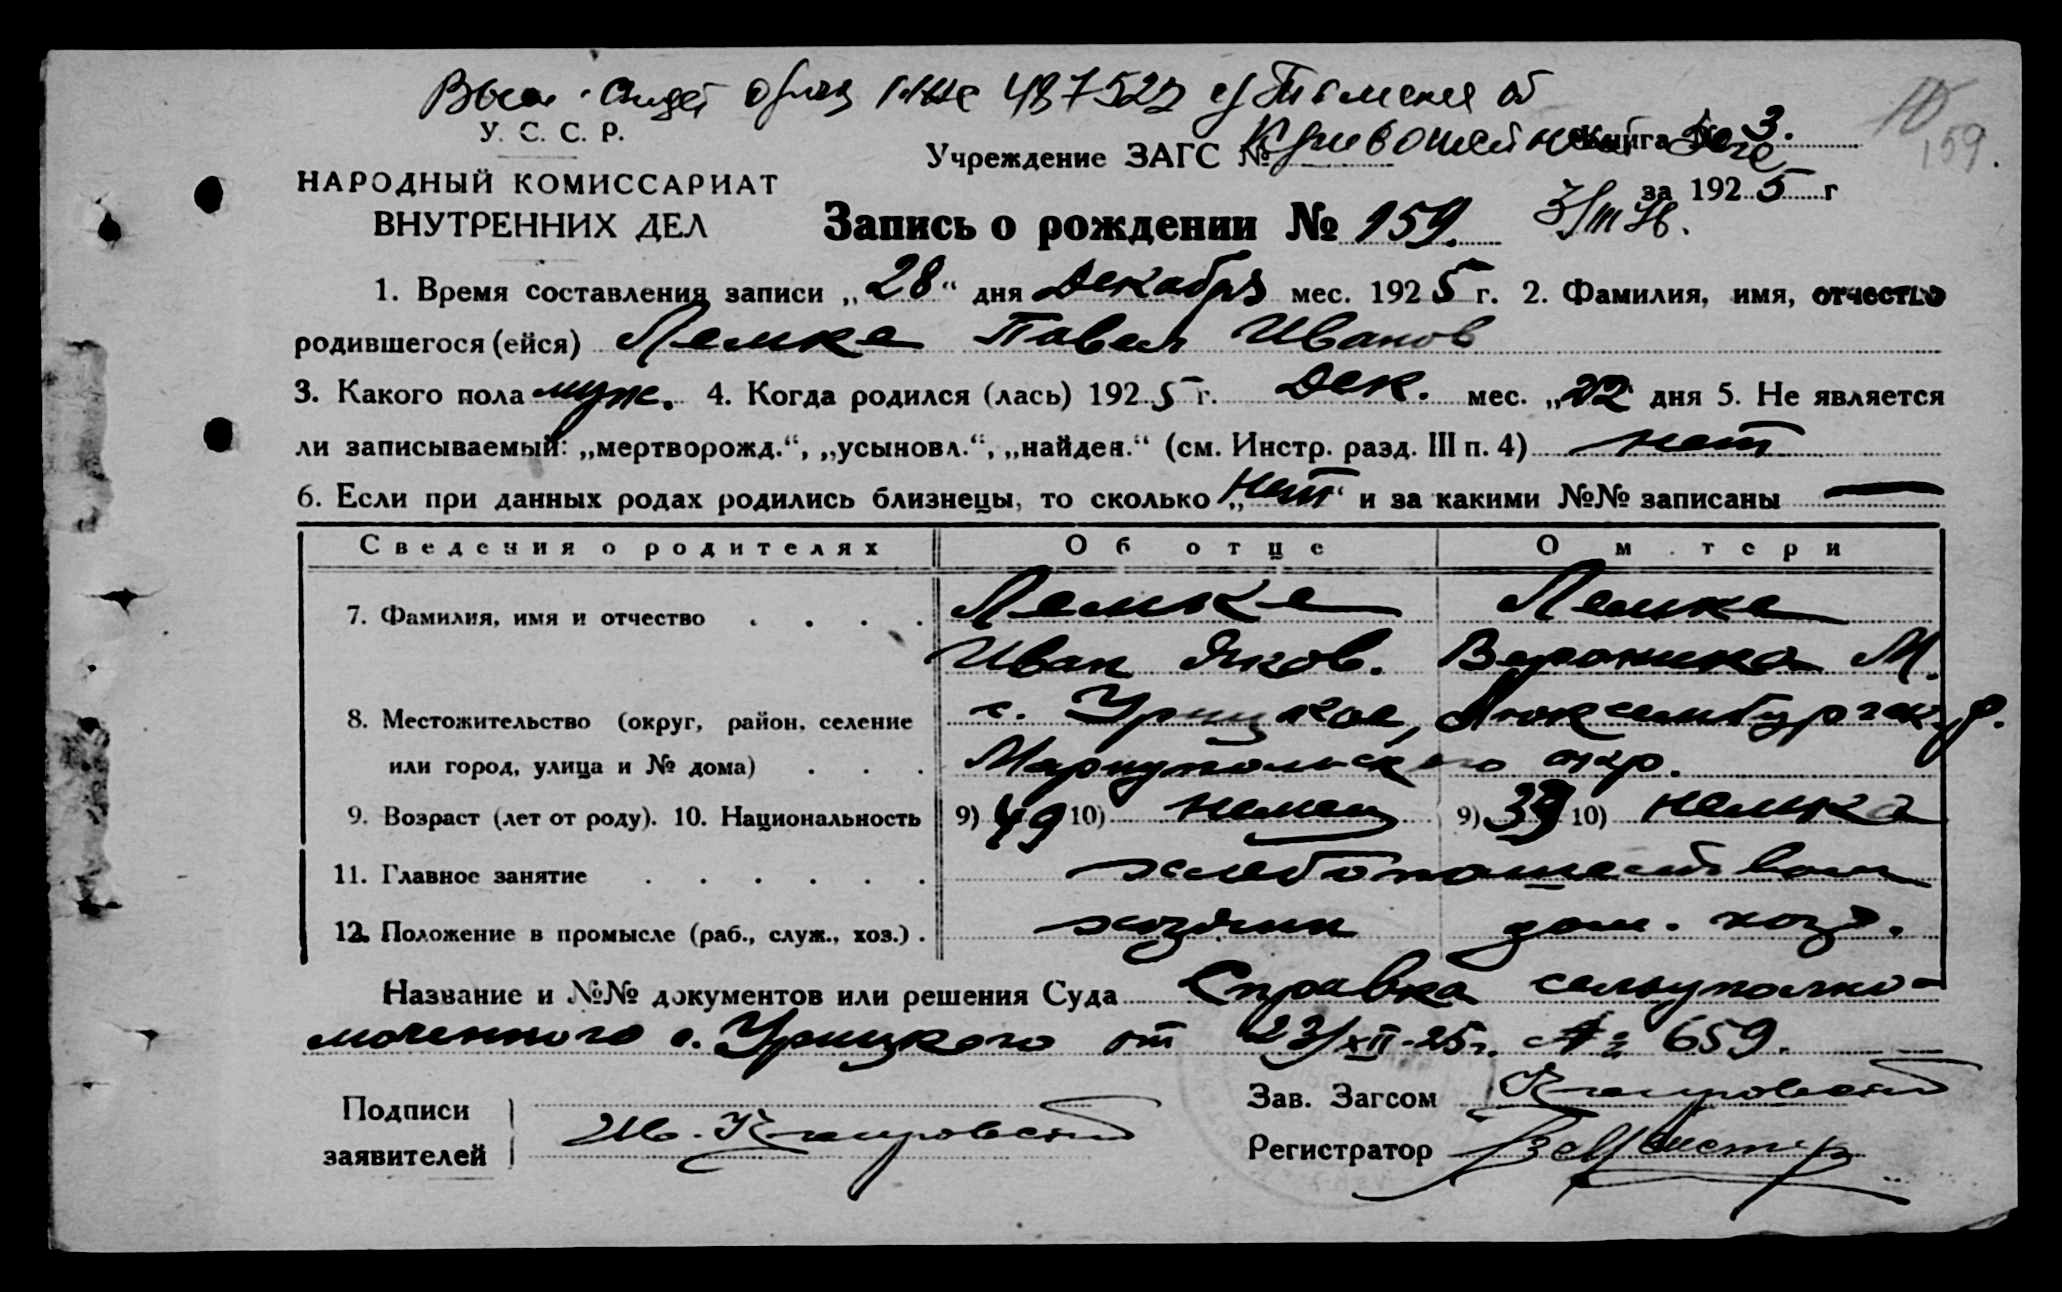 487523
У. С. С. Р.
Учреждение ЗАГС № Книга № 3.
10
159.
НАРОДНЫЙ КОМИССАРИАТ
ВНУТРЕННИХ ДЕЛ
за 1925 г
Запись о рождении № 159.
1. Время составления записи „28“ дня Декабря мес. 1925 г. 2. Фамилия, имя, отчество
родившегося (ейся) Лемке Павел Иванов
3. Какого пола муж. 4. Когда родился (лась) 1925 г. Дек. мес. „22 дня 5. Не является
ли записываемый: „мертворожд.“, „усыновл.“, „найден.“ (см. Инстр. разд. III п. 4) нет
6. Если при данных родах родились близнецы, то сколько „нет“ и за какими №№ записаны —
Сведения о родителях Об отце О м тери
7. Фамилия, имя и отчество Лемке Лемке
Иван Яков. Вероника М.
8. Местожительство (округ, район, селение с. Урицкое, Люксембургск. р.
или город, улица и № дома) Мариупольского окр.
9. Возраст (лет от роду). 10. Национальность 9) 49 10) немец 9) 39 10) немка
11. Главное занятие хлебопашеством
12. Положение в промысле (раб., служ., хоз.) хозяин дом. хоз.
Название и №№ документов или решения Суда Справка сельуполно-
моченного с. Урицкого от 23/XII-25г. № 659.
Зав. Загсом
Подписи
заявителей
Регистратор